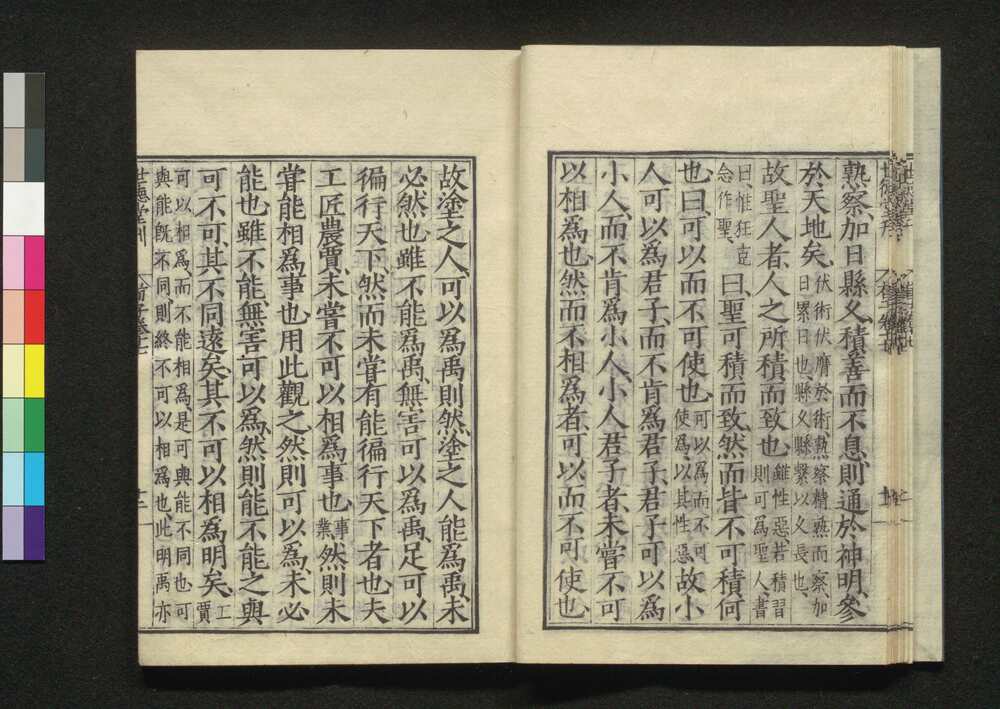 熟察、加日縣久、積善而不息、則通於神明、參
於天地矣、伏術伏膺於術熟察精熟而察加
日累日也縣久縣繫以久長也
故聖人者、人之所積而致也雖性惡若積習
則可爲聖人書
曰惟狂克
念作聖曰聖可積而致、然而皆不可積何
也曰可以而不可使也可以爲而不可
使爲以其性惡故小
人可以爲君子、而不肯爲君子、君子可以爲
小人、而不肯爲小人、小人君子者、未嘗不可
以相爲也、然而不相爲者、可以而不可使也
故塗之人、可以爲禹則然、塗之人能爲禹、未
必然也、雖不能爲禹、無害可以爲禹、足可以
徧行天下、然而未嘗有能徧行天下者也、夫
工匠農賈、未嘗不可以相爲事也事
業然則未
嘗能相爲事也、用此觀之、然則可以爲、未必
能也、雖不能、無害可以爲、然則能不能之與
可不可、其不同遠矣、其不可以相爲明矣、工
賈
可以相爲、而不能相爲、是可與能不同也可
與能旣不同則終不可以相爲也此明禹亦